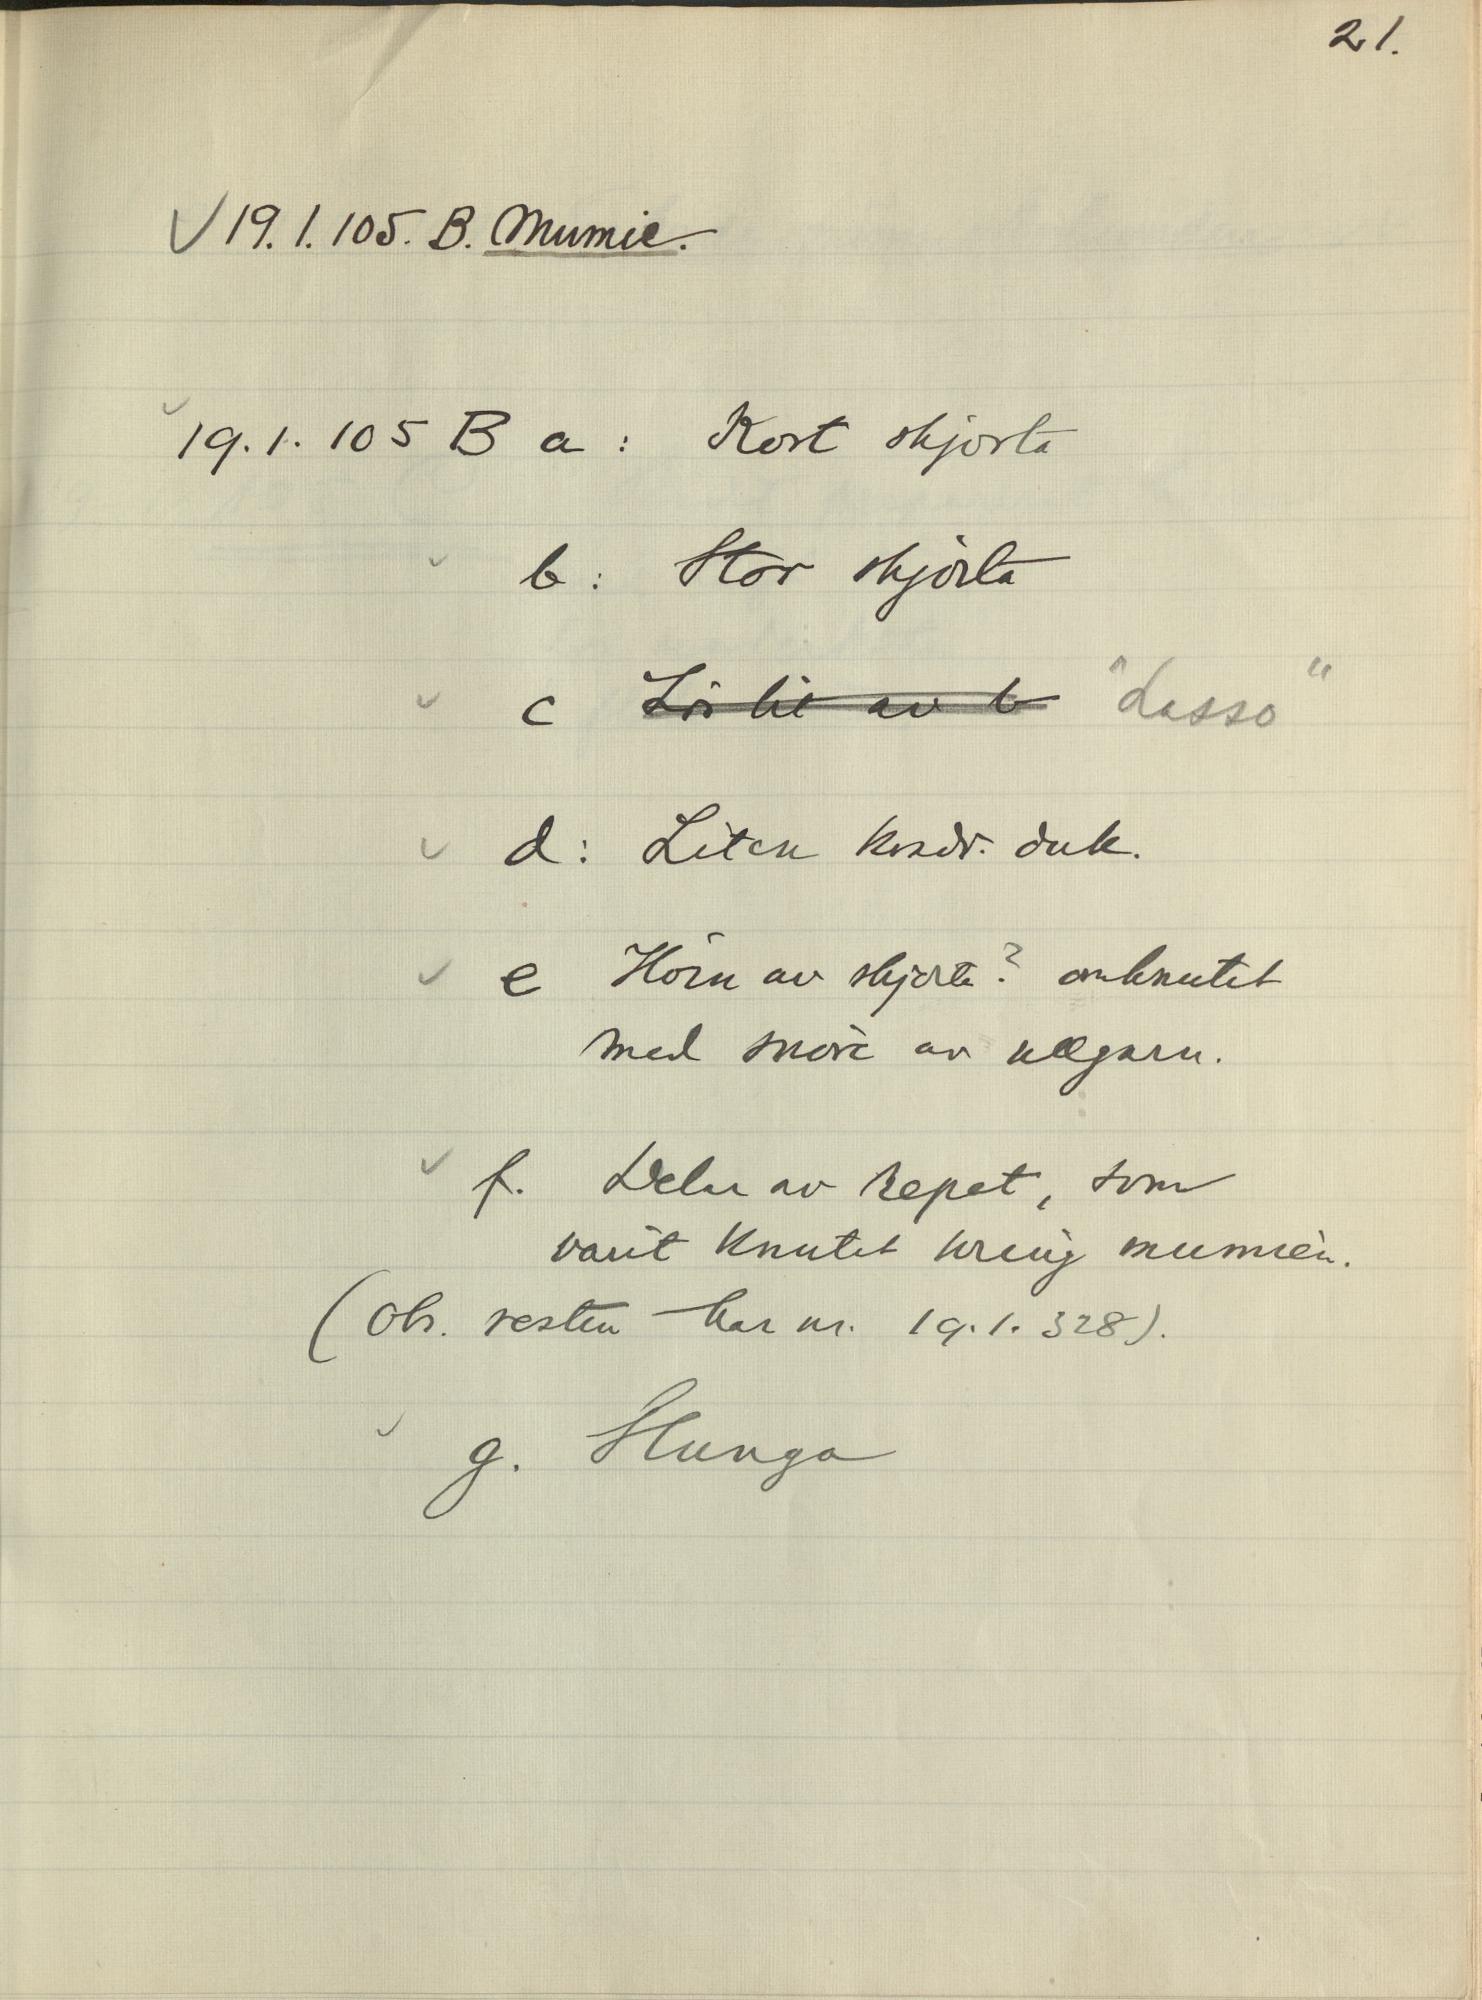 21.
✓ 19.1.105. B. Mumie.
✓ 19.1.105 B a : Kort skjorta
✓ b : Stor skjorta
✓ c Lös bit av b "Lasso"
✓ d : Liten kvadr. duk.
✓ e Hörn av skjorta? omknutet
med snöre av ullgarn.
✓ f. Delar av repet, som
varit knutet kring mumien.
(Obs. resten har nr. 19.1.328).
✓ g. Slunga